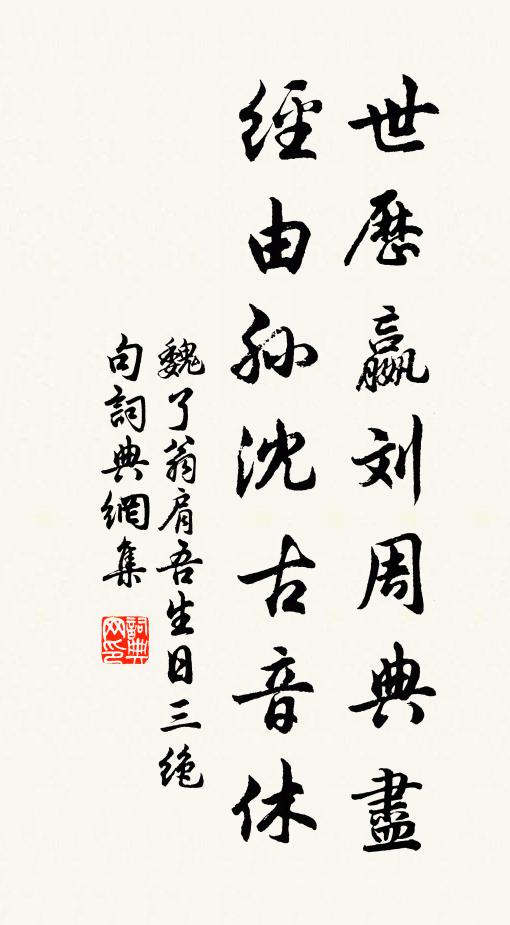 世歷嬴刘周典盡
經由孙沈古音休
魏了翁肩吾生日三绝
句詞典網集
詞典网印